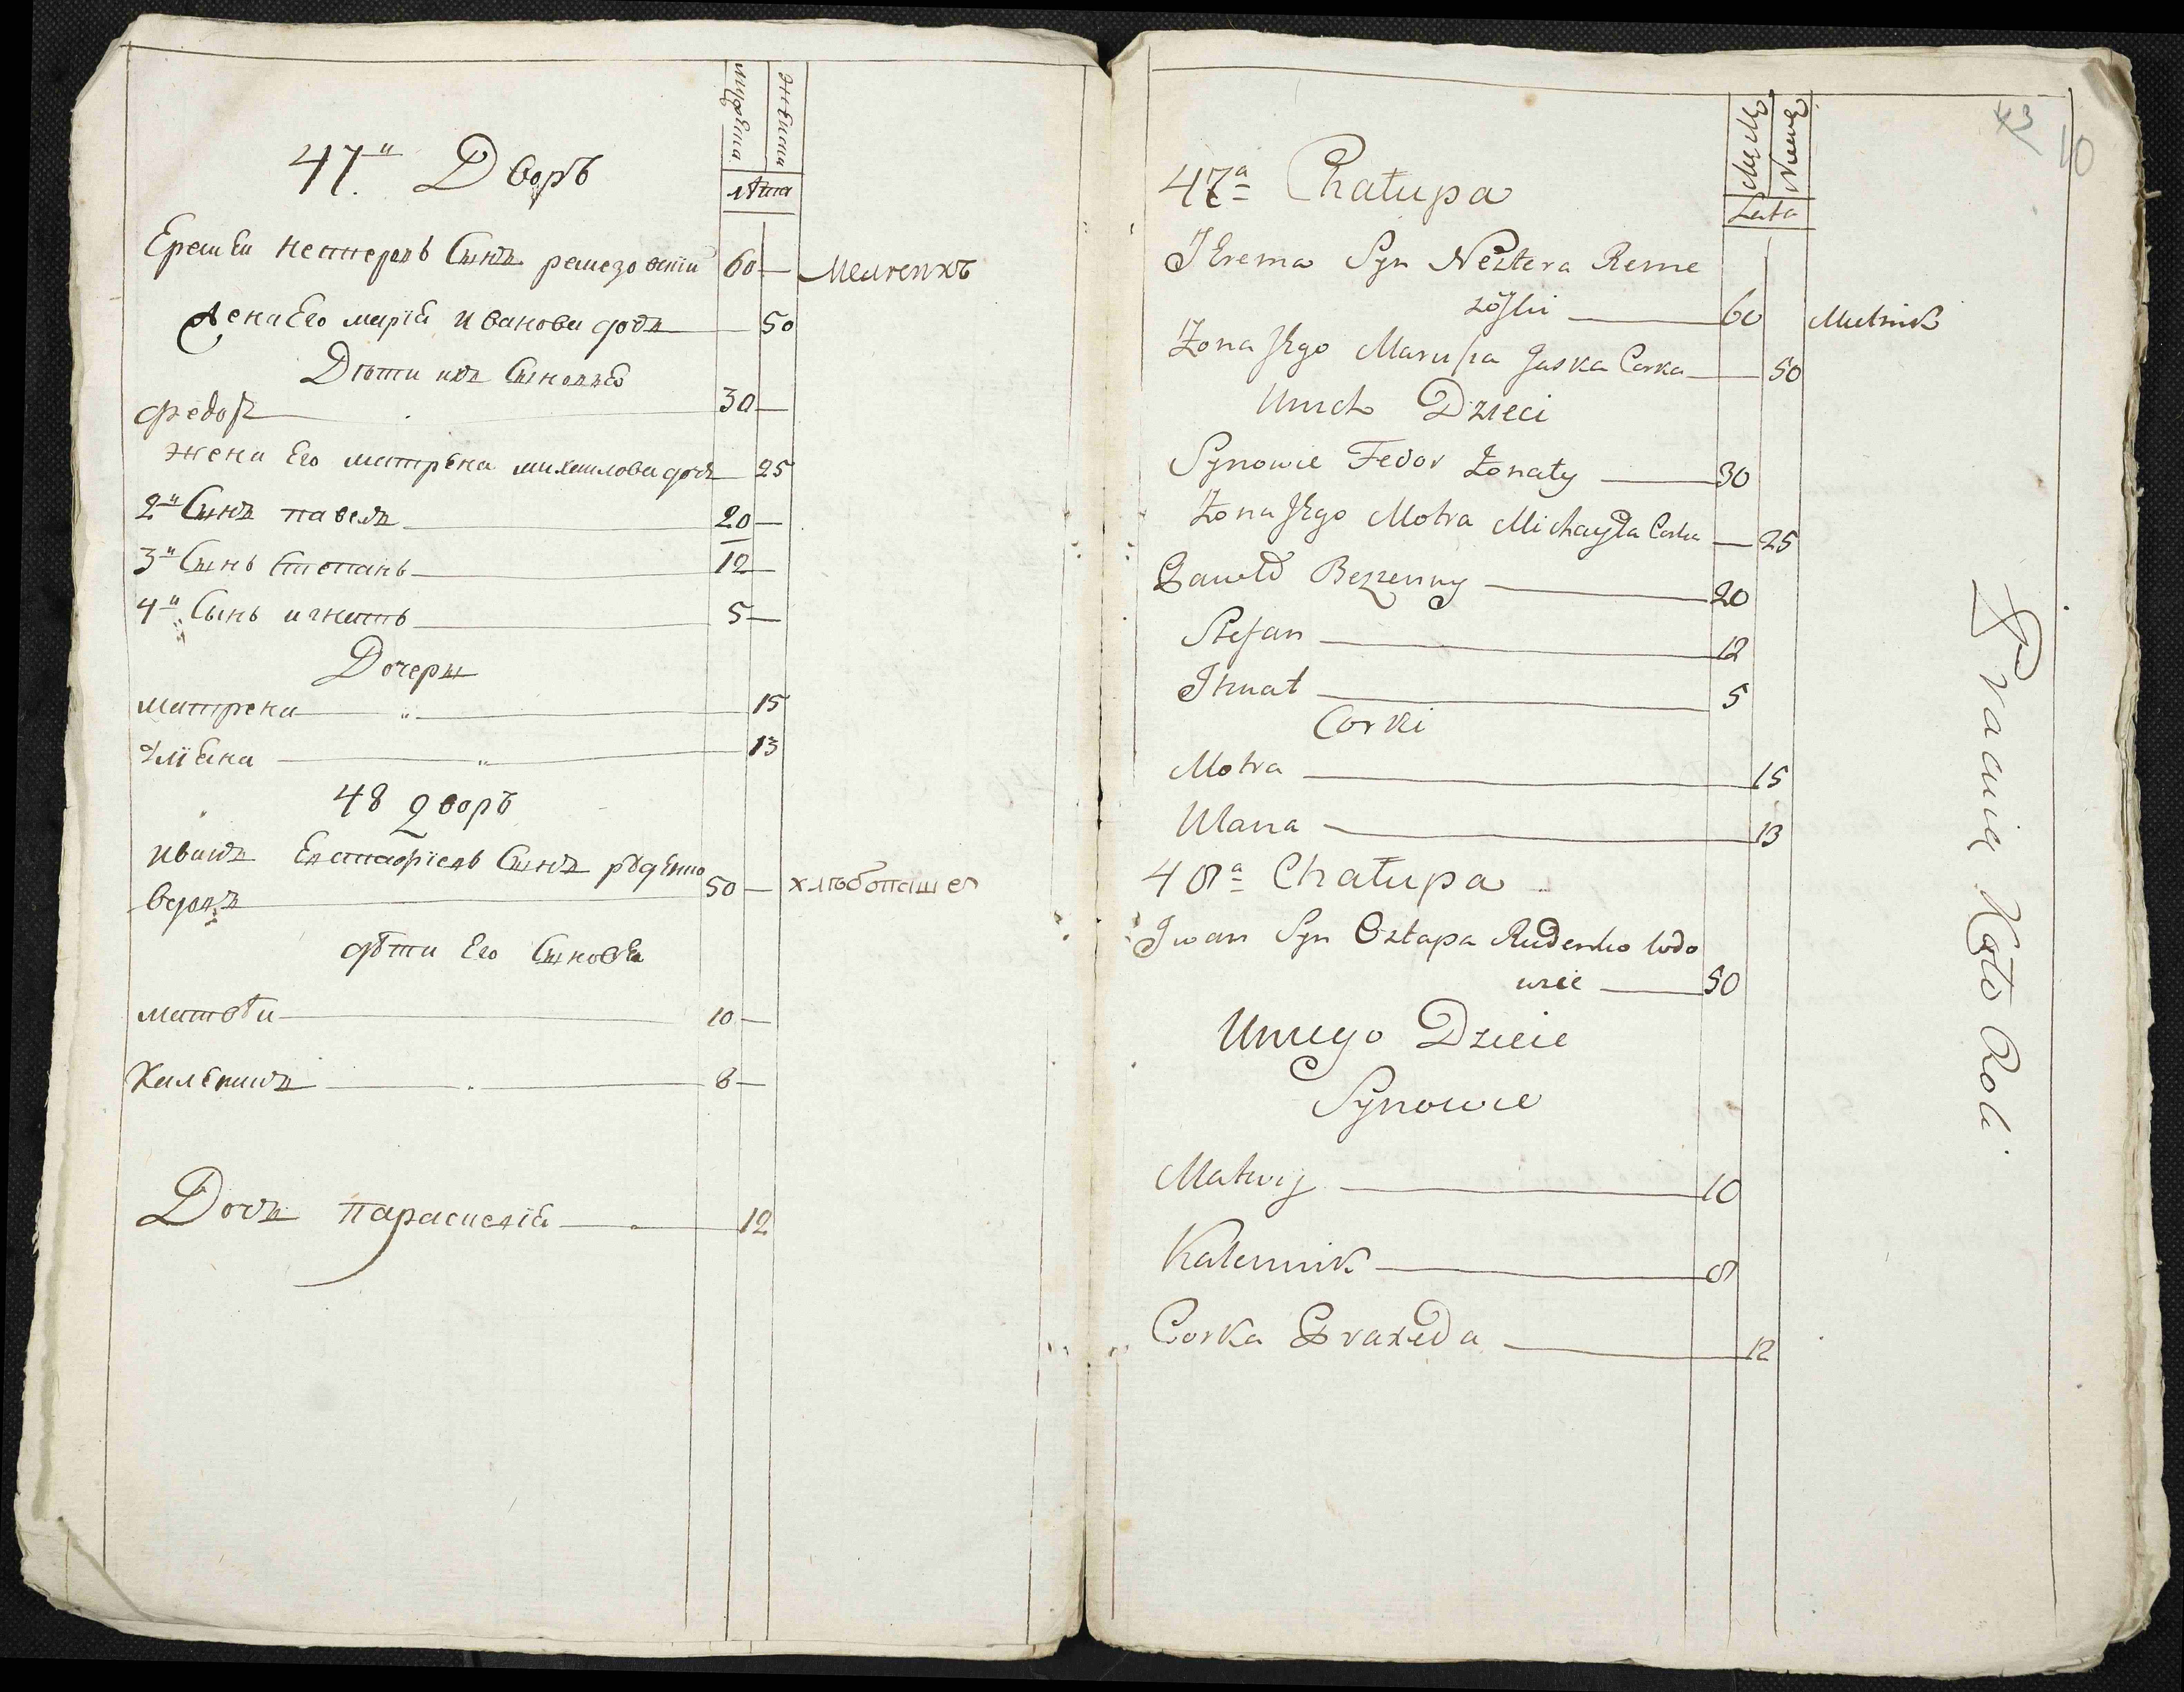 мужеска
женска
лѣта
47й Дворъ
Еремѣй нестеровъ Сынъ ремезовскій 60 Мелникъ
Жена Его марія Иванова дочь 50
Дѣти ихъ Сыновья
федоръ 30
жена Его матрена михаилова дочь 25
2й Сынъ павелъ 20
3й Сынъ Степанъ 12
4й Сынъ игнатъ 5
Дочери
матрена 15
улїяна 13
48 дворъ
иванъ Евстафїевъ Сынъ рѫденко
вдовъ 50 хлѣбопашец
дѣти Его Сыновья
матвѣй 10
Калѣникъ 8
Дочь парасковїя 12
43
10
Męzkę
Niewię
Lata
47a Chałupa
JErema Syn Nestera Reme
zoski 60 Mielnik
Żona JEgo Marusia Jaska Corka 50
Unich Dzieci
Synowie Fedor żonaty 30
Żona JEgo Motra Michayła Corka 25
Paweł Bezżenny 20
Stefan 12
Ihnat 5
Corki
Motra 15
Ulana 13
48a Chałupa
Iwan Syn Ostapa Rudenko wdo
wiec 50
Uniego Dzieci
Synowie
Matwij 10
Kalennik 8
Corka Praxeda 12
Prawie Koło Roli